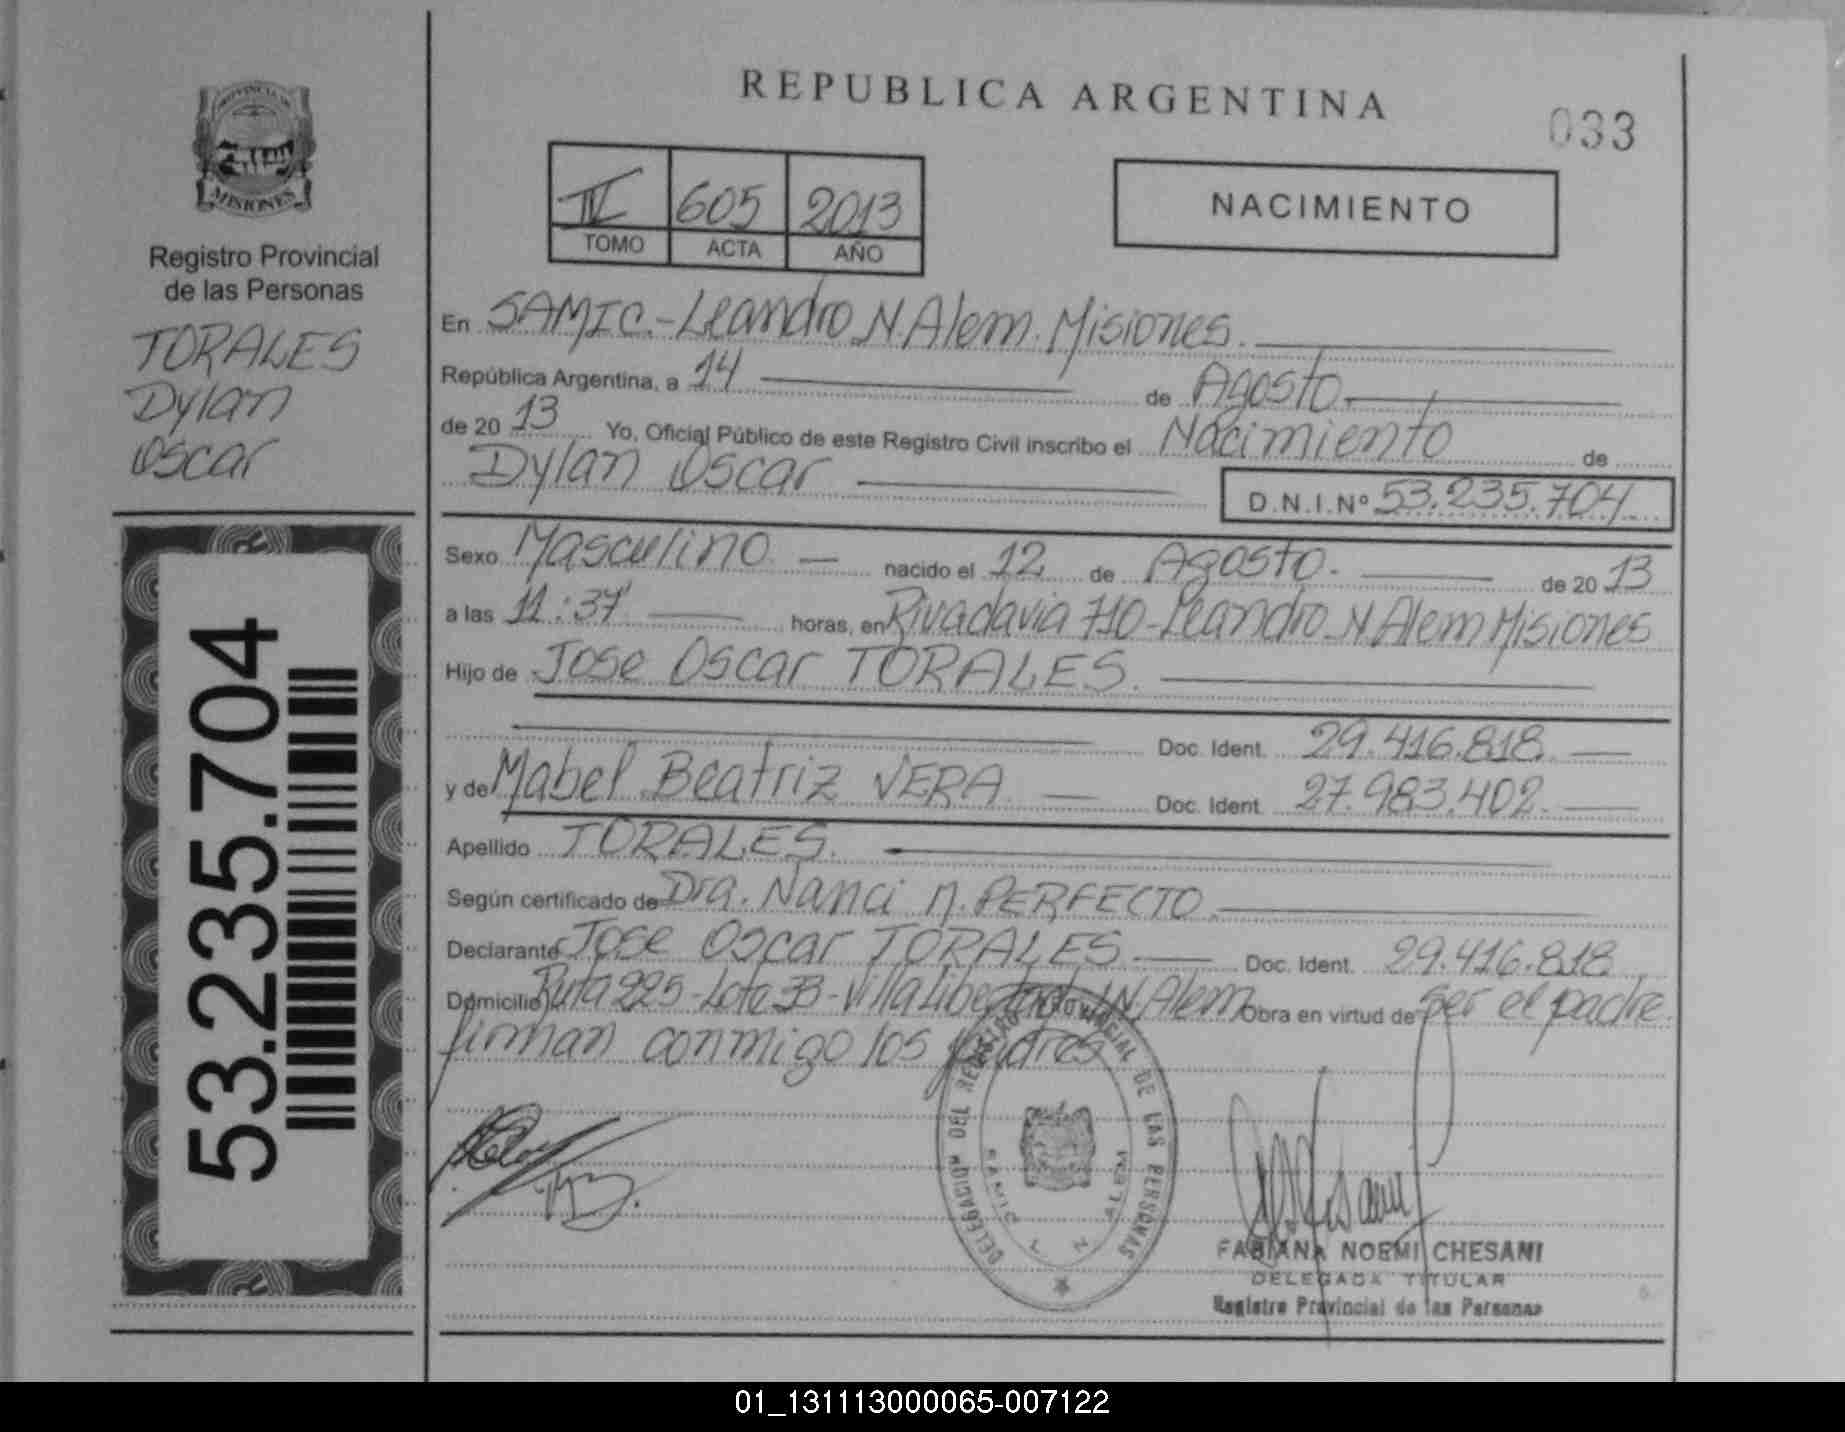 REPUBLICA ARGENTINA
033
PROVINCIA DE
MISIONES
Registro Provincial
de las Personas
TORALES
Dylan
Oscar
53.235.704
IV 605 2013
TOMO ACTA AÑO
NACIMIENTO
En SAMIC.-Leandro N. Alem. Misiones.
República Argentina, a 14 de Agosto
de 20 13 Yo, Oficial Público de este Registro Civil inscribo el Nacimiento de
Dylan Oscar D.N.I.Nº 53.235.704
Sexo Masculino nacido el 12 de Agosto. de 20 13
a las 11:37 horas, en Rivadavia 710-Leandro N Alem Misiones
Hijo de Jose Oscar TORALES.
Doc. Ident. 29.416.818
y de Mabel Beatriz VERA Doc. Ident. 27.983.402
Apellido TORALES.
Según certificado de Dra. Nanci N. PERFECTO
Declarante Jose Oscar TORALES Doc. Ident. 29.416.818
Domicilio Ruta 225-Lote 33-Villa Libertad LN. Alem Obra en virtud de ser el padre
firman conmigo los padres
DELEGACION DEL REGISTRO PROVINCIAL DE LAS PERSONAS
SAMIC L N ALEM
FABIANA NOEMI CHESANI
DELEGADA TITULAR
Registro Provincial de las Personas
01_131113000065-007122